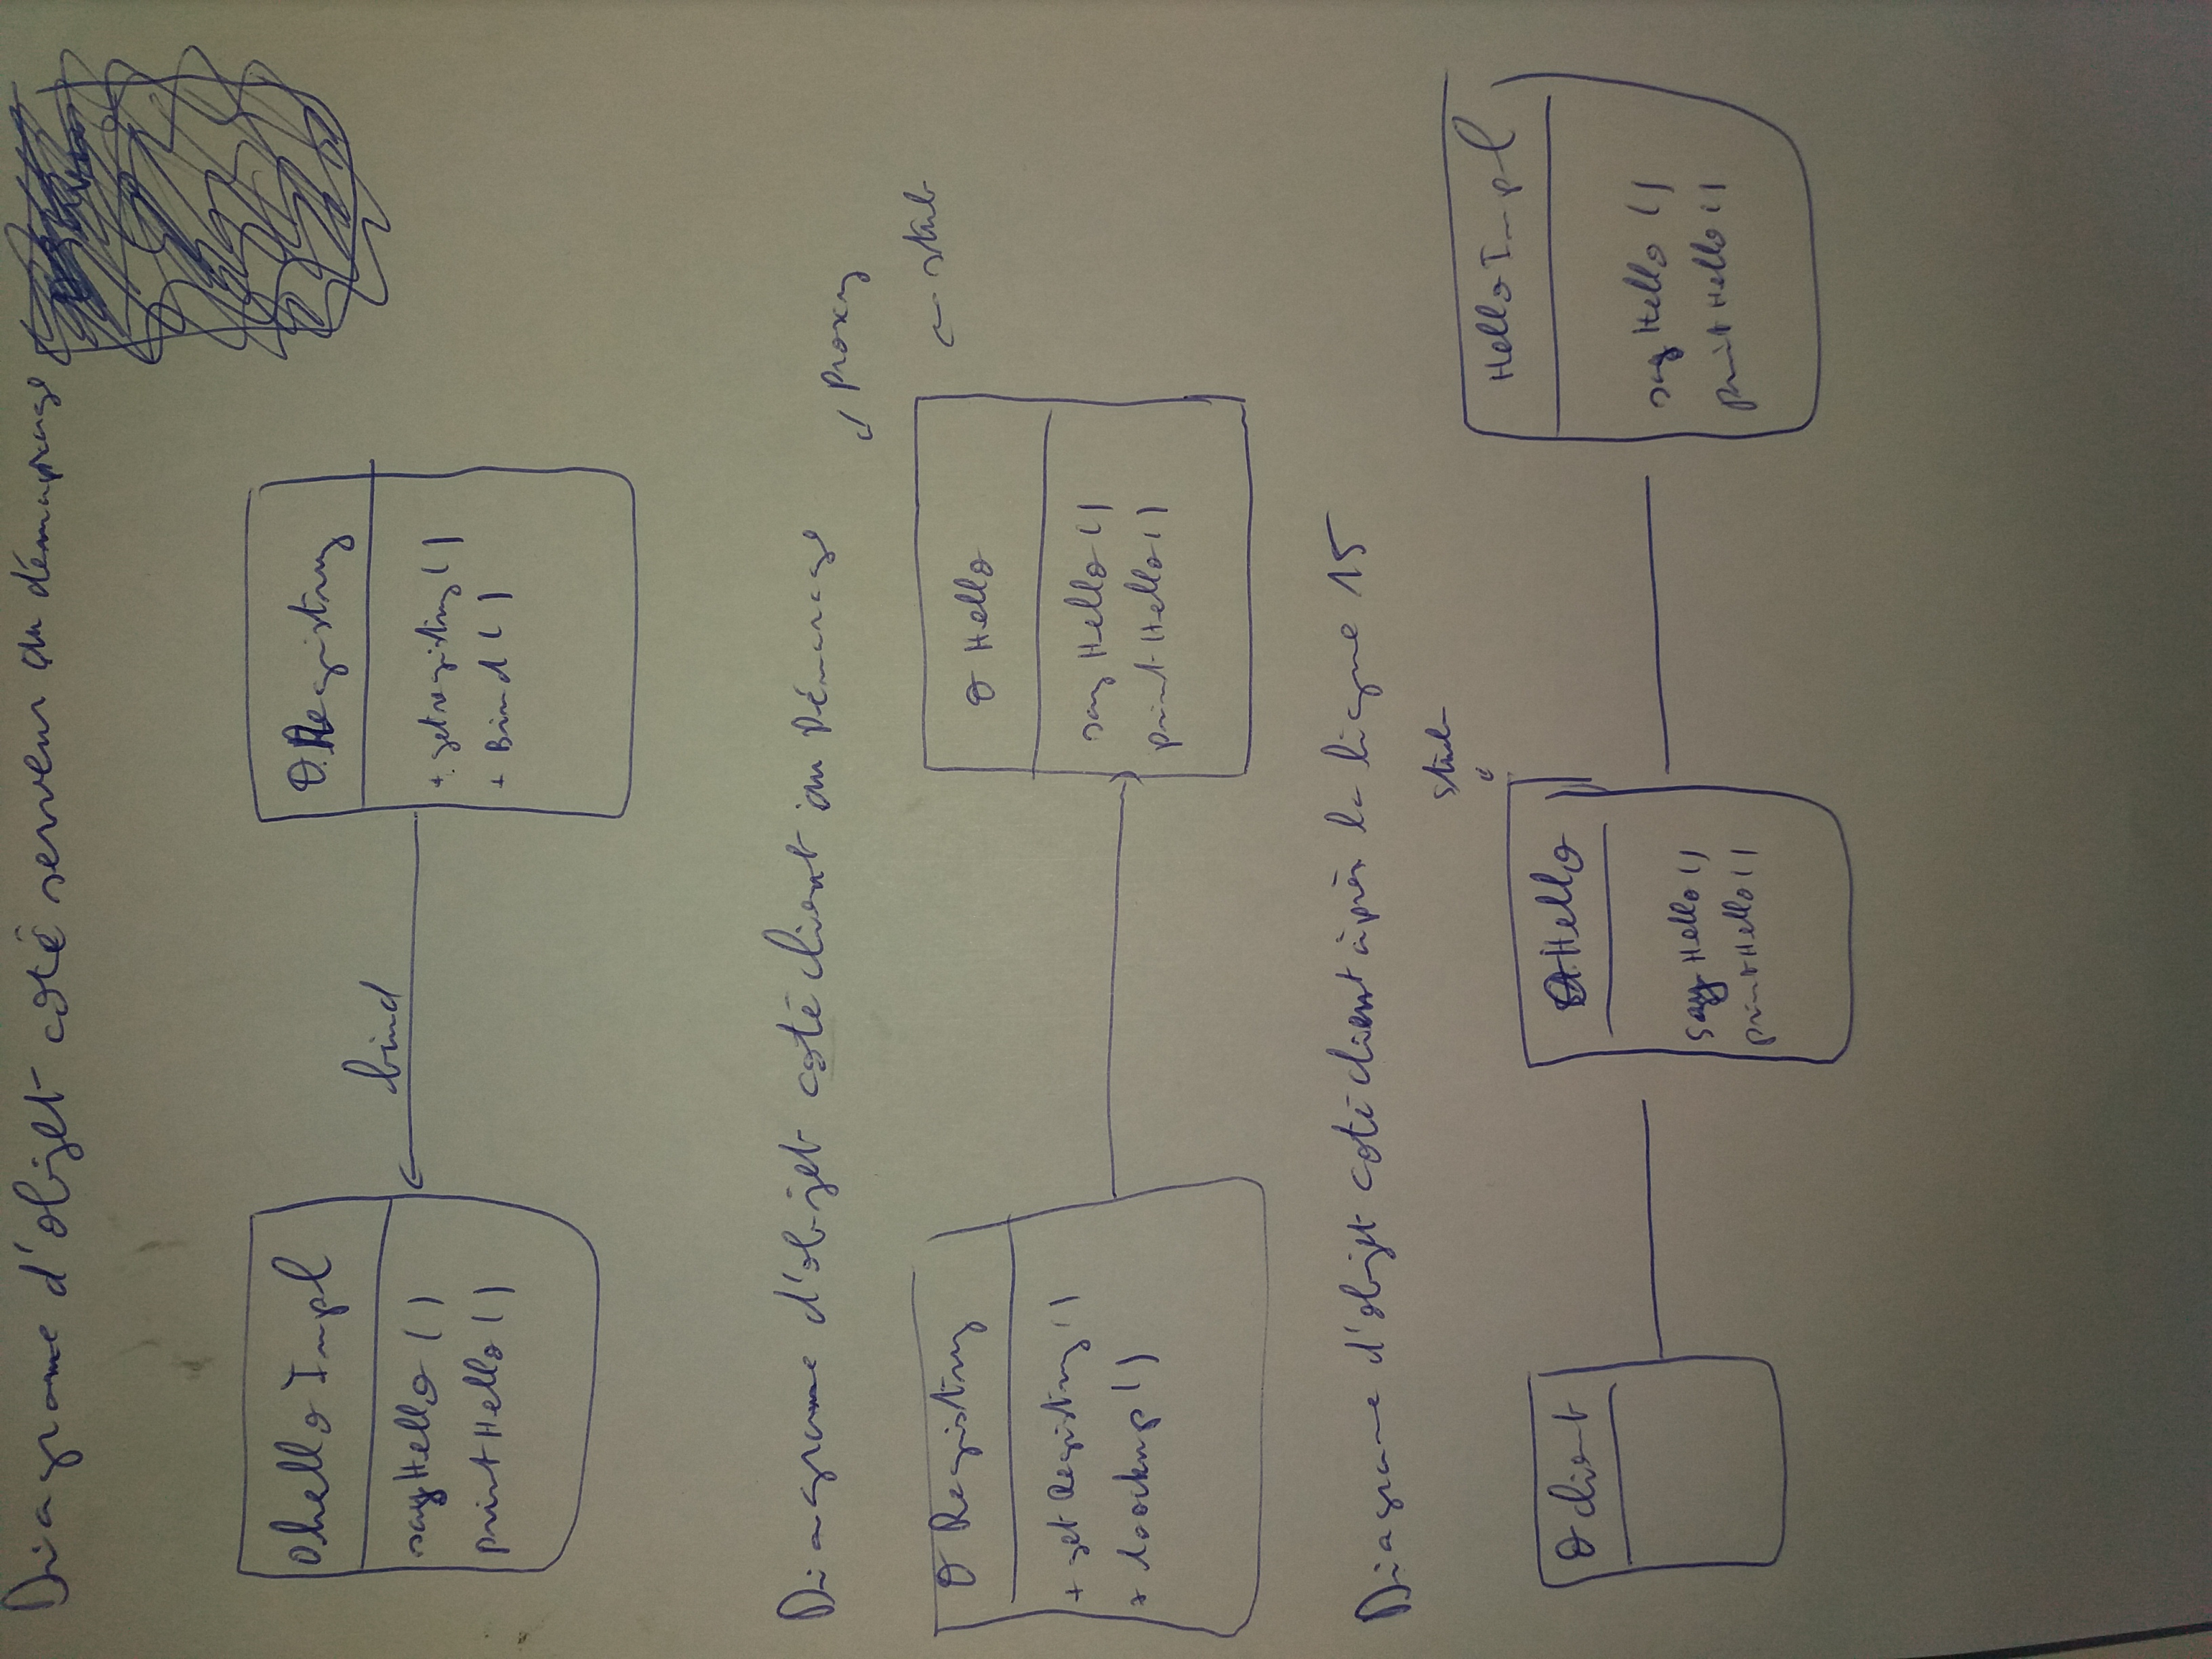 Diagrame d'objet coté serveur au démarrage
O.hello Impl
sayHello ()
printHello ()
bind
O.Registry
+ getregistry ()
+ Bind ()
Diagrame d'objet coté client au Démarage
Proxy
stub
O Registry
+ getRegistry ()
+ loockup ()
O Hello
say Hello ()
print Hello ()
Diagrame d'objet coté client après la ligne 15
stub
O client
O.Hello
say Hello ()
printHello ()
Hello Impl
say Hello ()
print Hello ()